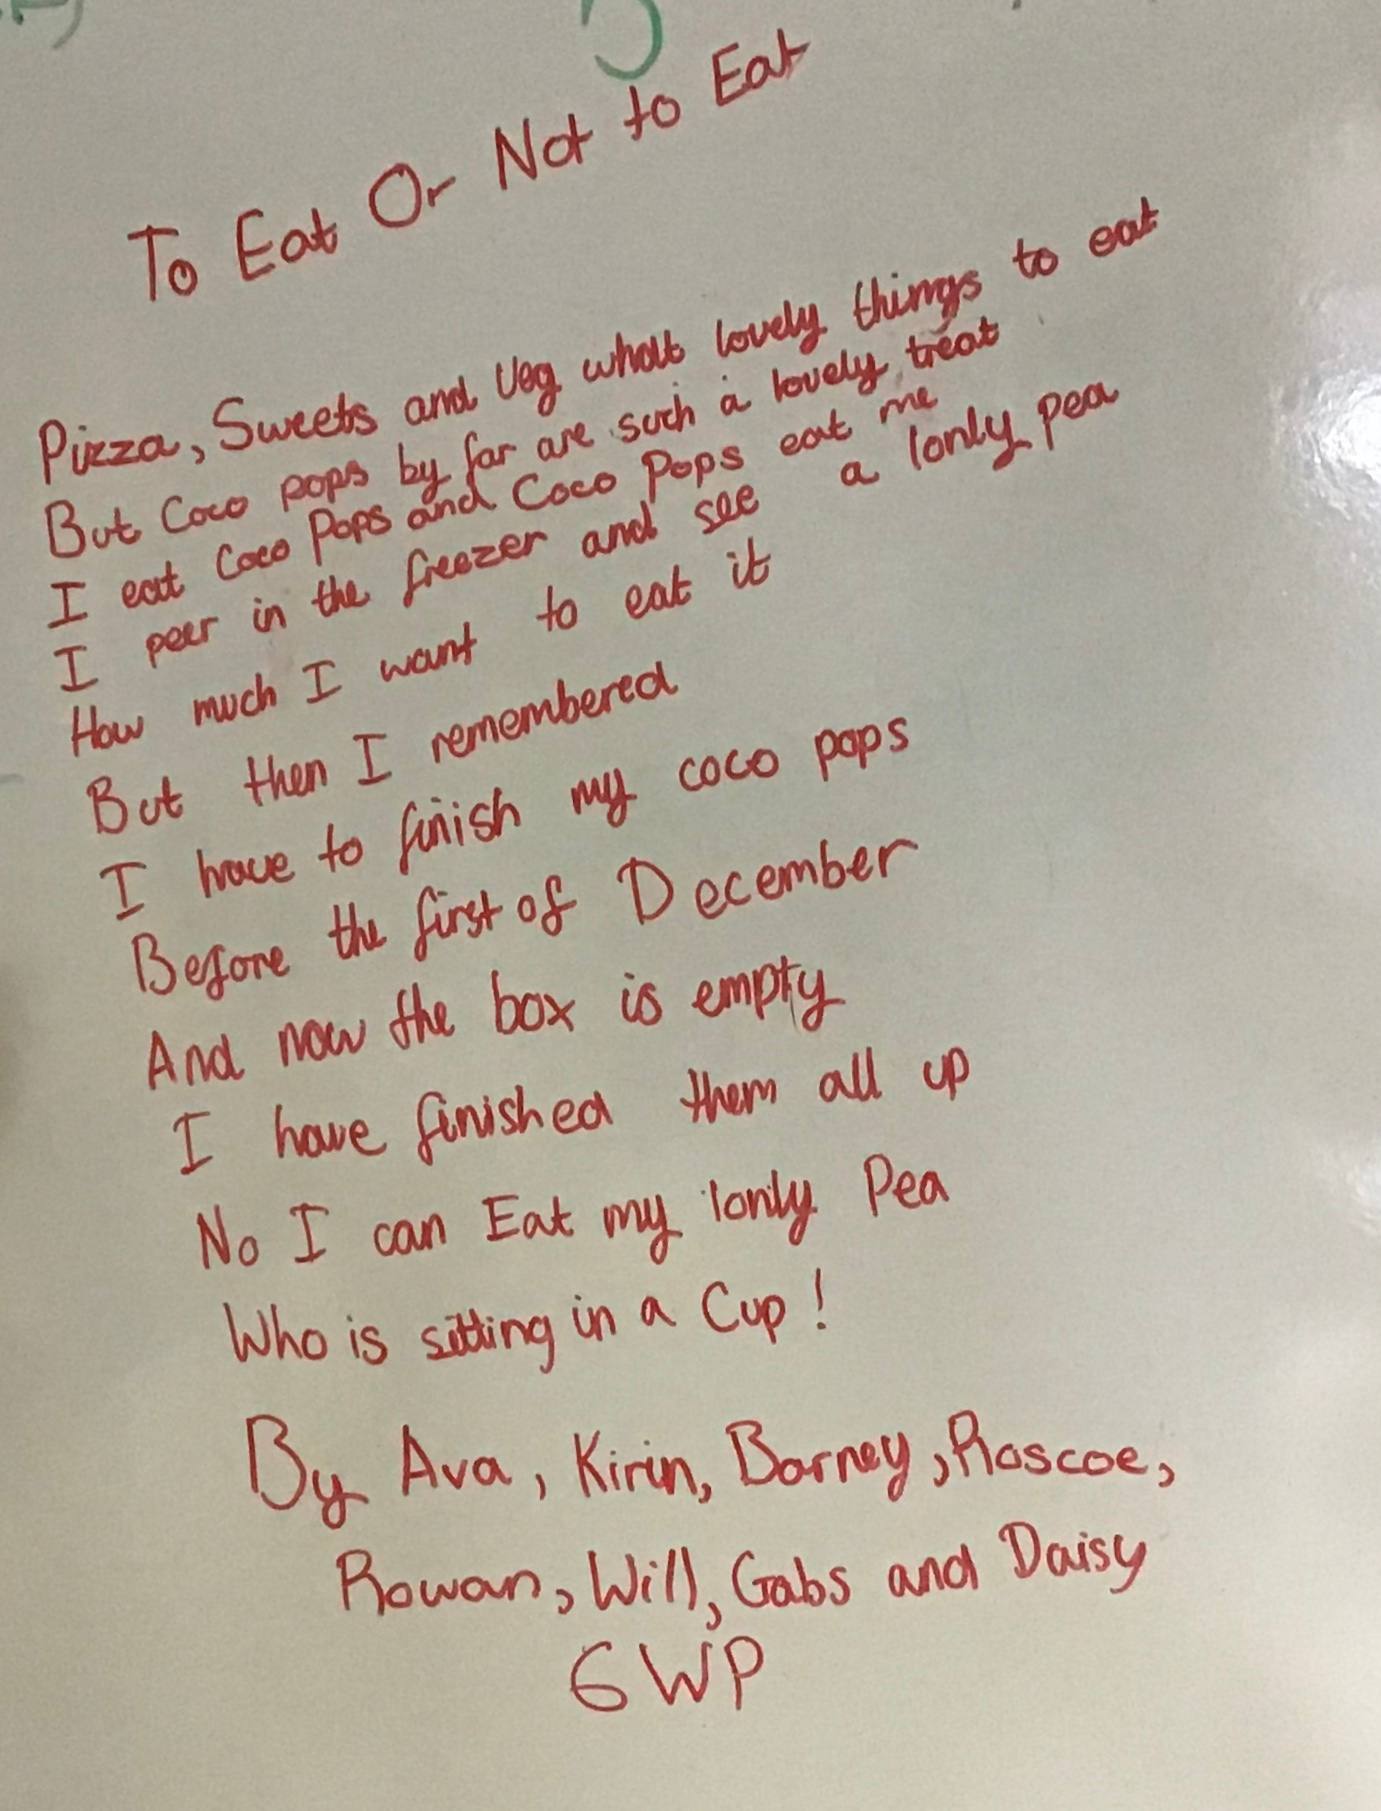 To Eat Or Not to Eat
Pizza, Sweets and Veg what lovely things to eat
But Coco pops by far are such a lovely treat
I eat Coco Pops and Coco Pops eat me
I peer in the freezer and see a lonly pea
How much I want to eat it
But then I remembered
I have to finish my coco pops
Before the first of December
And now the box is empty
I have finished them all up
No I can Eat my lonly Pea
Who is sitting in a Cup!
By Ava, Kirin, Barney, Roscoe,
Rowan, Will, Gabs and Daisy
6WP